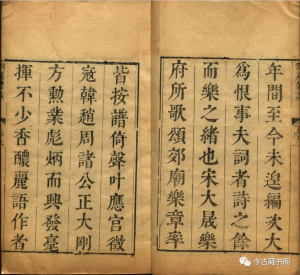 年間至今未遑編次大
爲恨事夫詞者詩之餘
而樂之緒也宋大晟樂
府所歌頌郊廟樂章率
皆按譜倚聲叶應宮徵
寇韓趙周諸公正大剛
方勲業彪炳而興發毫
揮不少香醲麗語作者
今古藏书阁